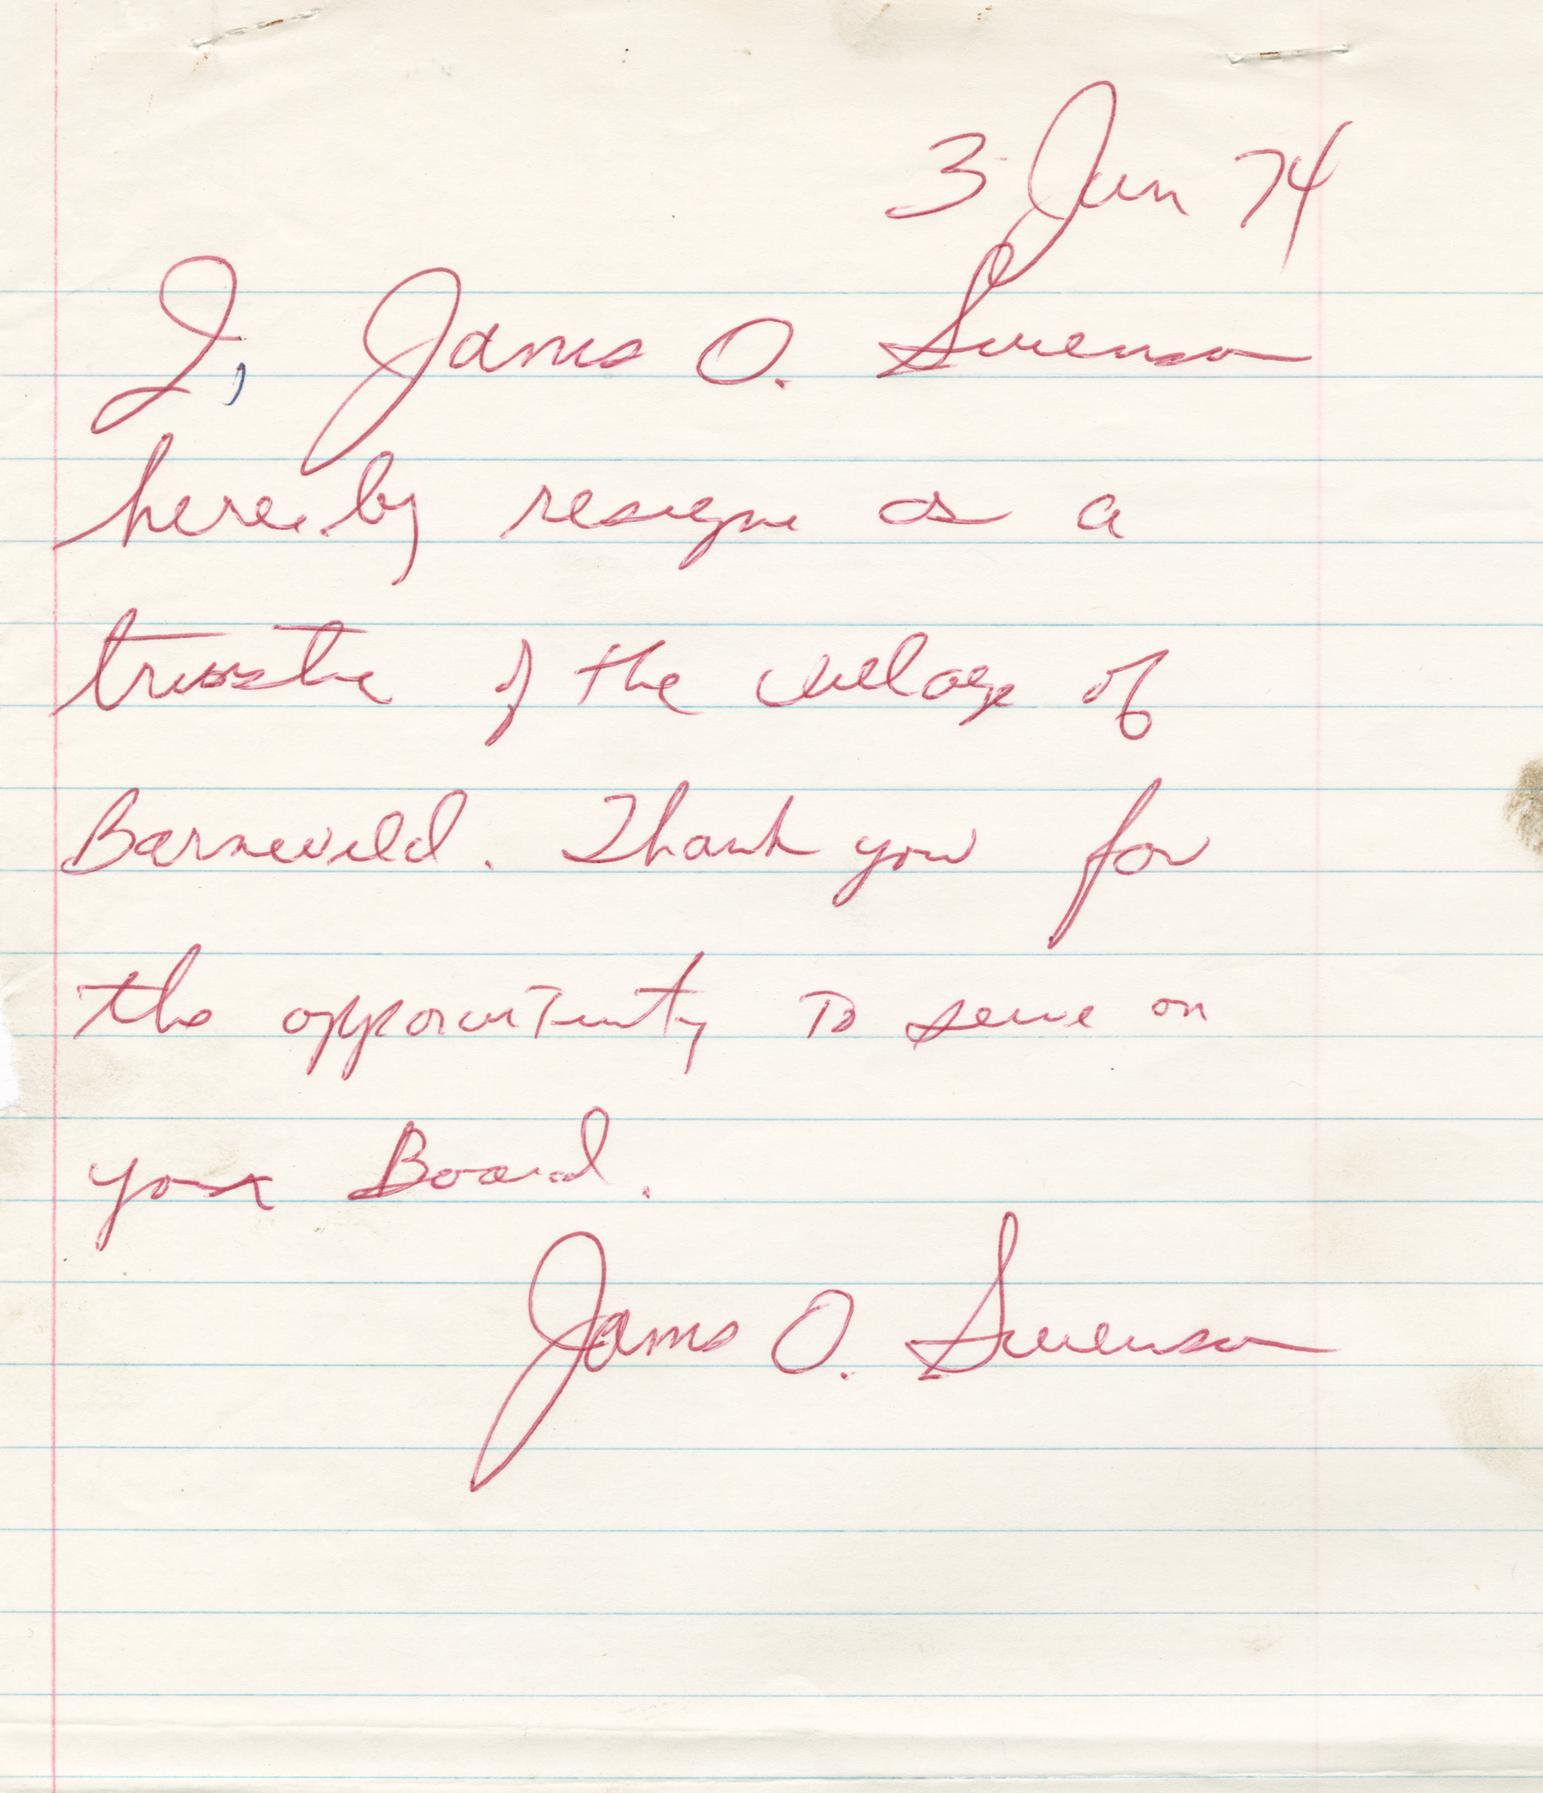 3 Jun 74
I, James O. Swenson
hereby resign as a
trusstee of the village of
Barneveld. Thank you for
the opportunity to serve on
your Board.
James O. Swenson